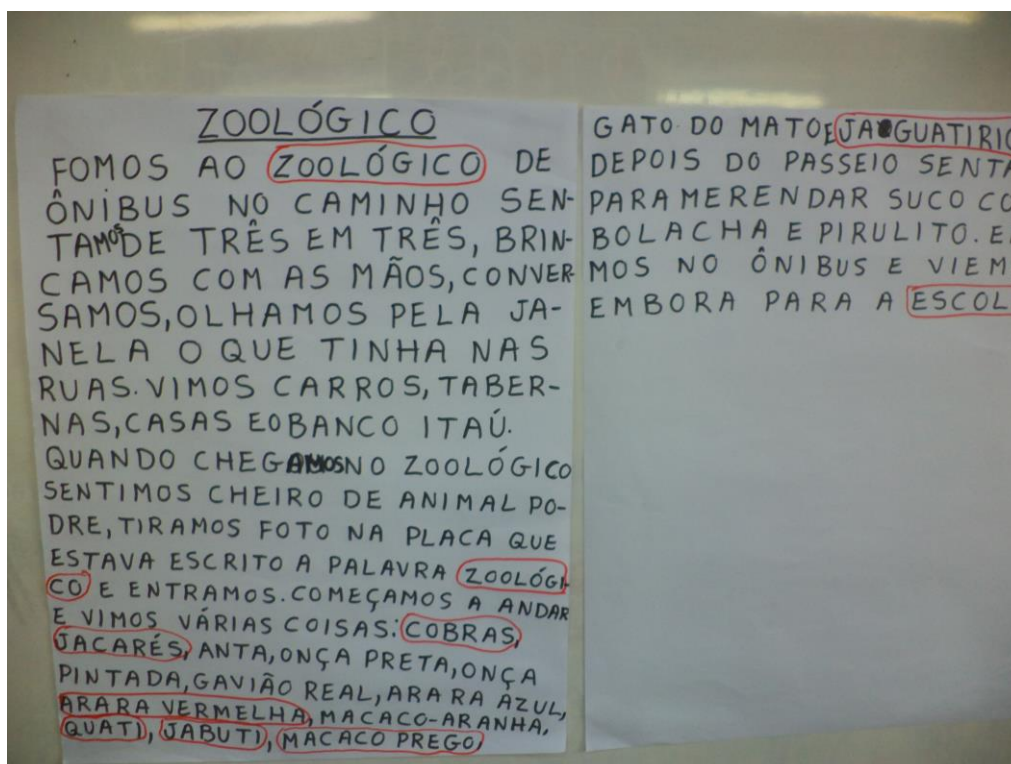 ZOOLÓGICO
FOMOS AO ZOOLÓGICO DE
ÔNIBUS NO CAMINHO SEN-
TAMOS DE TRÊS EM TRÊS, BRIN-
CAMOS COM AS MÃOS, CONVER
SAMOS, OLHAMOS PELA JA-
NELA O QUE TINHA NAS
RUAS. VIMOS CARROS, TABER-
NAS, CASAS E O BANCO ITAÚ.
QUANDO CHEGAMOS NO ZOOLÓGICO
SENTIMOS CHEIRO DE ANIMAL PO-
DRE, TIRAMOS FOTO NA PLACA QUE
ESTAVA ESCRITO A PALAVRA ZOOLÓGI-
CO E ENTRAMOS. COMEÇAMOS A ANDAR
E VIMOS VÁRIAS COISAS: COBRAS,
JACARÉS, ANTA, ONÇA PRETA, ONÇA
PINTADA, GAVIÃO REAL, ARARA AZUL,
ARARA VERMELHA, MACACO-ARANHA,
QUATI, JABUTI, MACACO PREGO,
GATO DO MATO E JAGUATIRIC
DEPOIS DO PASSEIO SENTA
PARA MERENDAR SUCO CO
BOLACHA E PIRULITO. E
MOS NO ÔNIBUS E VIEM
EMBORA PARA A ESCOL